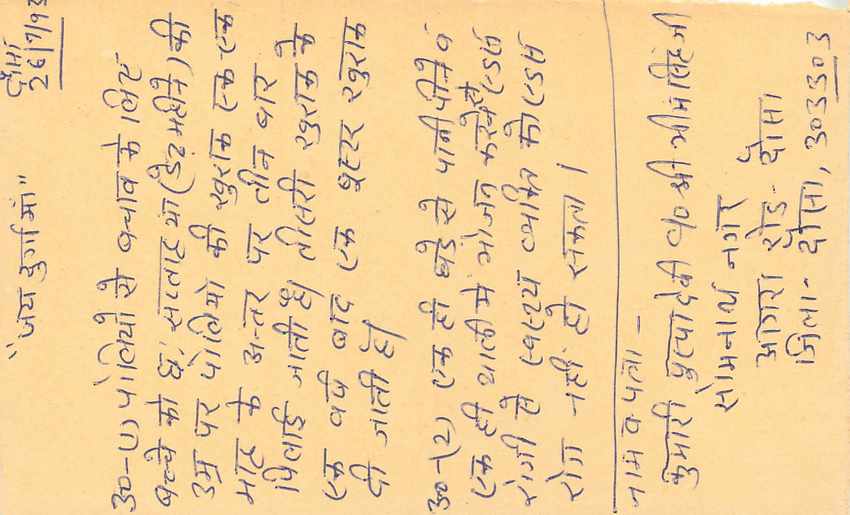 "जय दुर्गा माँ"
दौसा
26/7/93
उ०-(1) पोलियो से बचाव के लिए
बच्चे को छः सप्ताह या (डेढ़ महीने) की
उम्र पर पोलियो की खुराक एक-एक
माह के अन्तर पर तीन बार
पिलाई जाती है। तीसरी खुराक के
एक वर्ष बाद एक बूस्टर खुराक
दी जाती है।
उ०-(2) एक ही घड़े से पानी पीने व
एक ही थाली में भोजन करने से एड्स
रोगी से स्वस्थ व्यक्ति को एड्स
रोग नहीं हो सकता।
नाम व पता -
कुमारी पुष्पा देवी c/o श्री भीम सिंह जी
सोमनाथ नगर
आगरा रोड- दौसा
जिला- दौसा, 303303